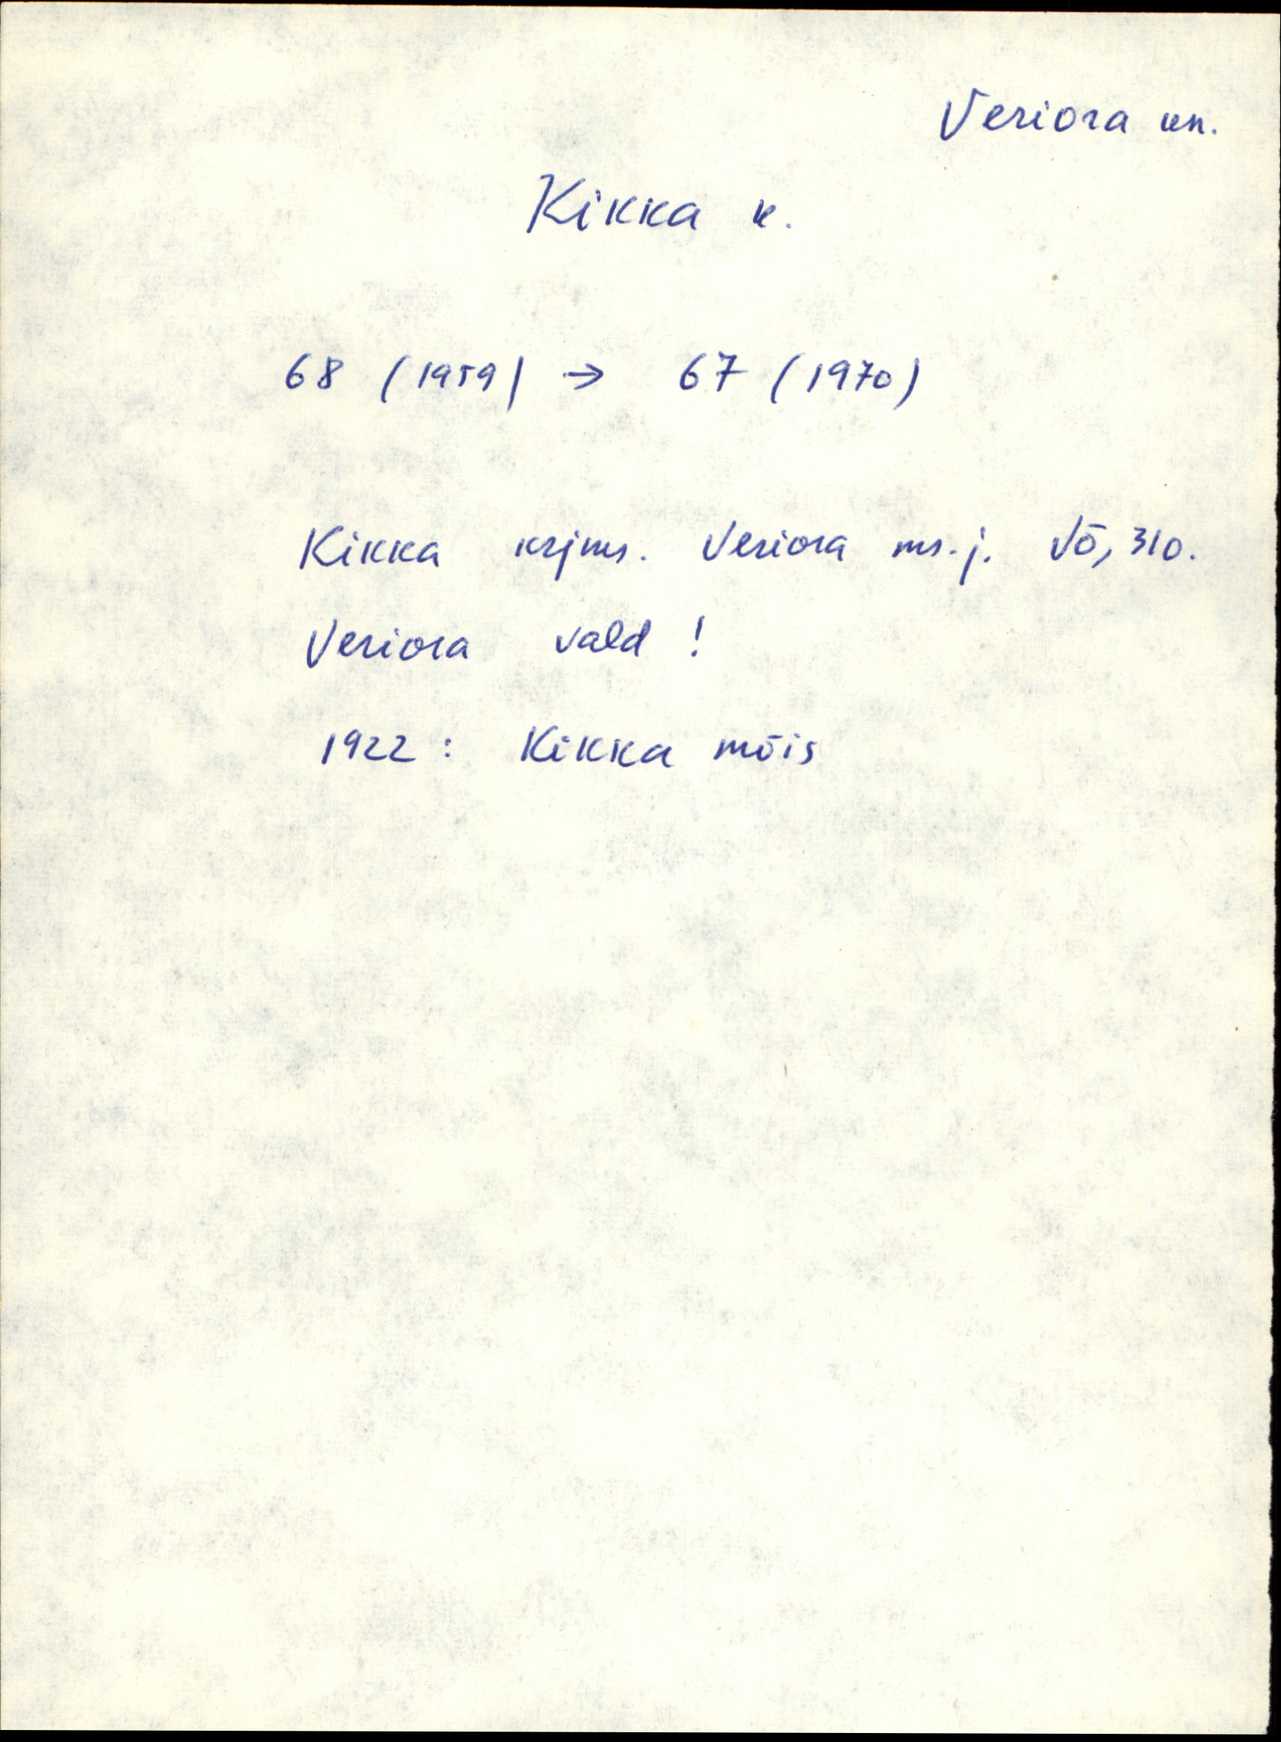 Veriora kn.
Kikka k.
68 (1959) → 67 (1970)
Kikka krjms. Veriora ms. j. Võ, 310.
Veriora vald !
1922 : Kikka mõis